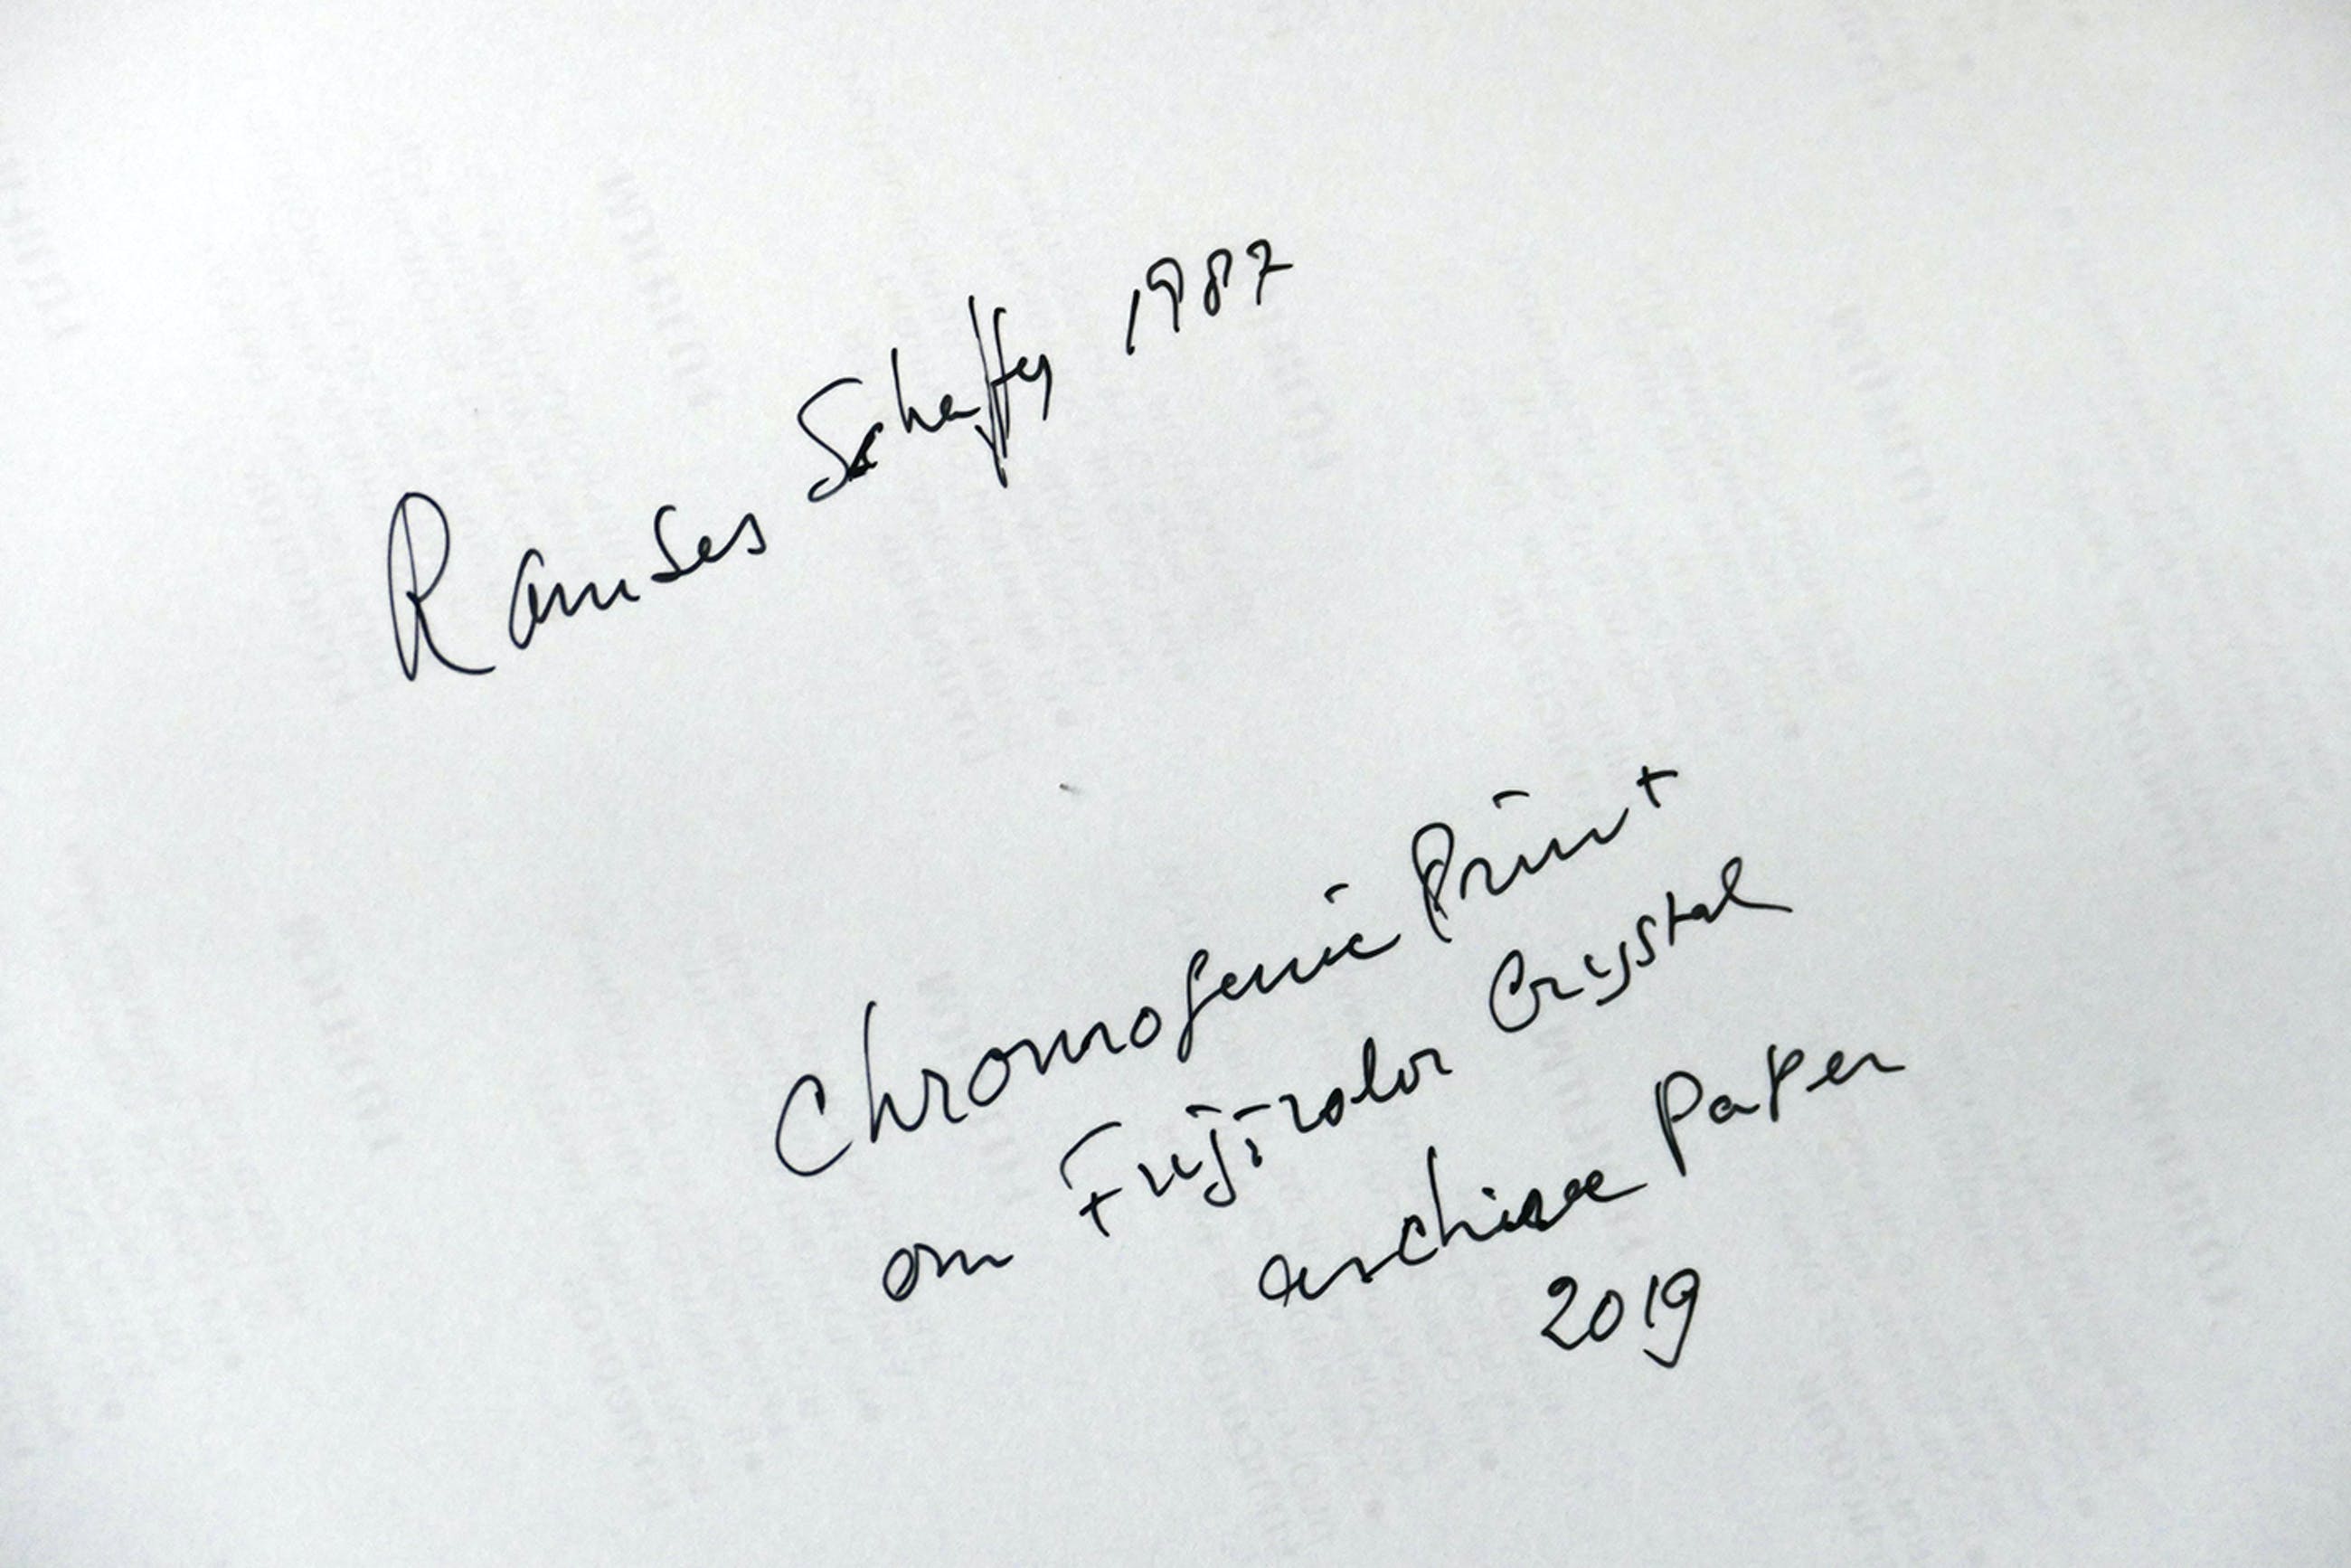 Ramses Schaffy 1987
Chromogenic Print
on Fujicolor Crystal
archive Paper
2019